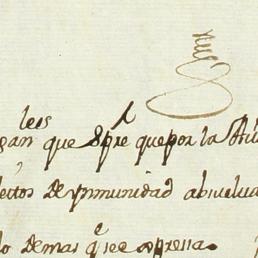 lees
gan que spre que por la Au
ectos de ynmunidad absuelva
lo demas q se expresa.